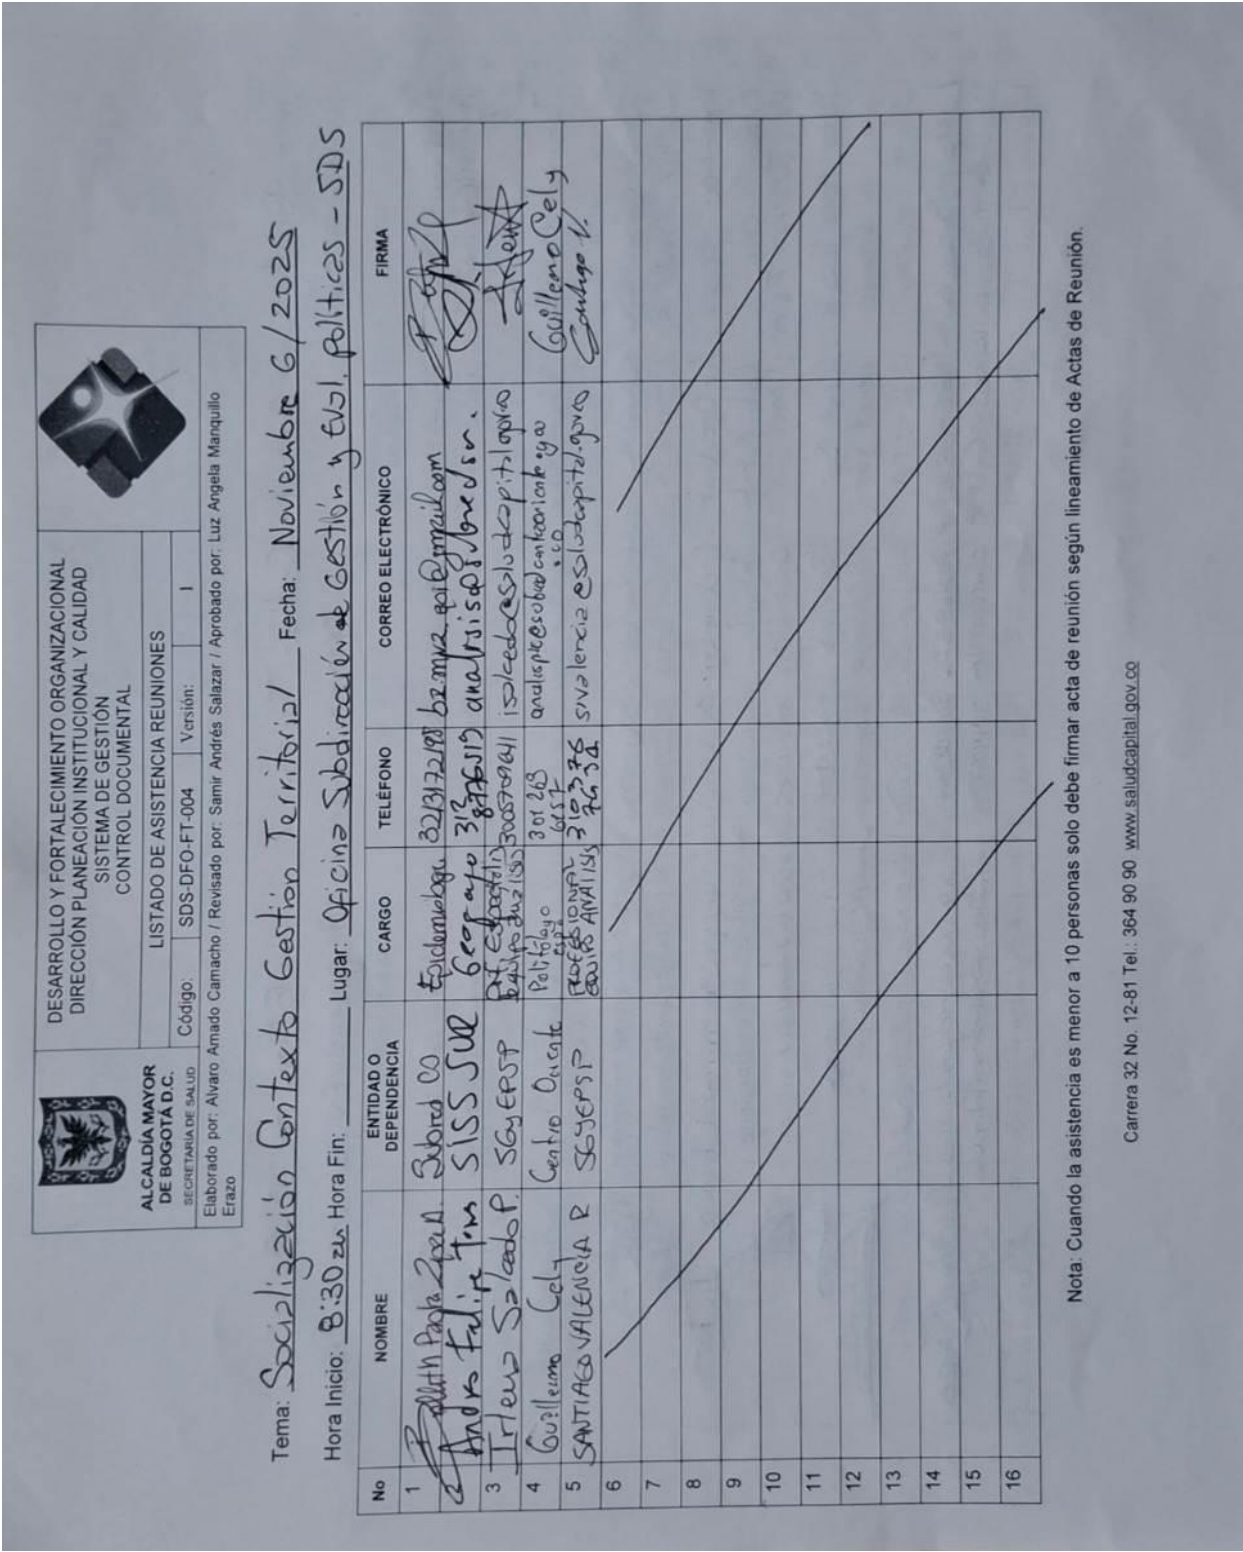 ALCALDÍA MAYOR
DE BOGOTÁ D.C.
SECRETARÍA DE SALUD
DESARROLLO Y FORTALECIMIENTO ORGANIZACIONAL
DIRECCIÓN PLANEACIÓN INSTITUCIONAL Y CALIDAD
SISTEMA DE GESTIÓN
CONTROL DOCUMENTAL
LISTADO DE ASISTENCIA REUNIONES
Código: SDS-DFO-FT-004 Versión: 1
Elaborado por: Alvaro Amado Camacho / Revisado por: Samir Andrés Salazar / Aprobado por: Luz Angela Manquillo
Erazo
Tema: Socialización Contexto Gestión Territorial Fecha: Noviembre 6/2025
Hora Inicio: 8:30 Hora Fin: Lugar: Oficina Subdirección de Gestión y Eval. políticas - SDS
No NOMBRE ENTIDAD O DEPENDENCIA CARGO TELÉFONO CORREO ELECTRÓNICO FIRMA
1 Paola Subred CO Epidemiologa
Felipe SISS SUR Geografo 313
3 Salcedo P. SGyEPSP 3005709641
4 Guillermo Cely Centro Oriente Politólogo 301 263 6157 Guillermo Cely
5 SANTIAGO VALENCIA R SGYEPSP PROFESIONAL EQUIPO ANALISIS 310376 Santiago V.
6
7
8
9
10
11
12
13
14
15
16
Nota: Cuando la asistencia es menor a 10 personas solo debe firmar acta de reunión según lineamiento de Actas de Reunión.
Carrera 32 No. 12-81 Tel.: 364 90 90 www.saludcapital.gov.co